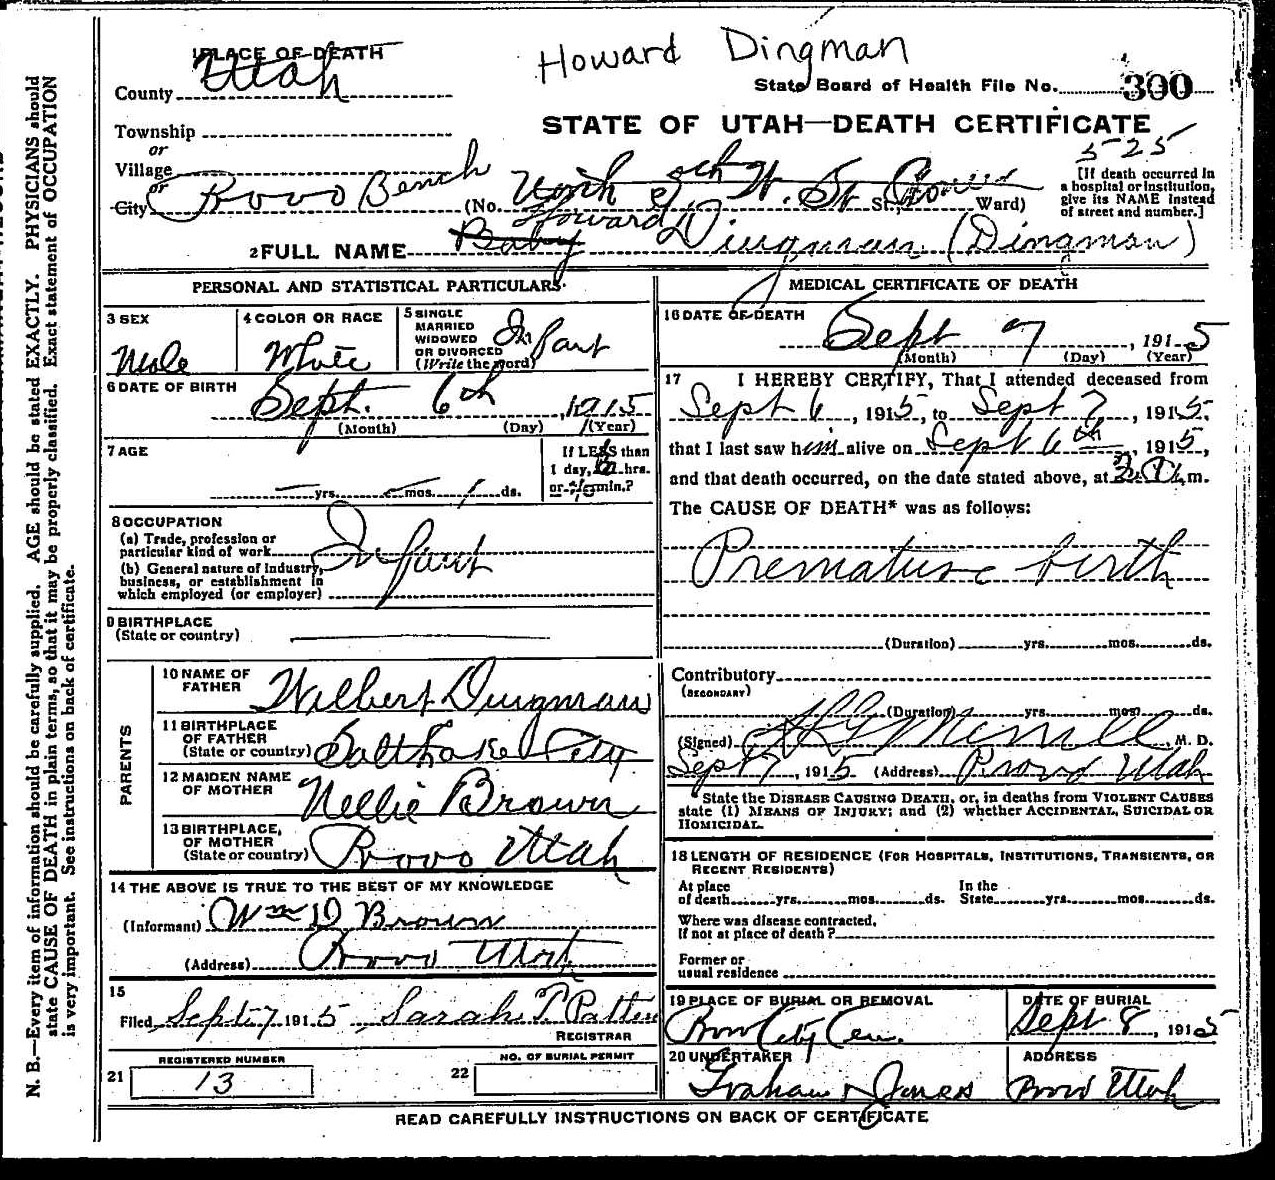 Howard Dingman
1 PLACE OF DEATH
County Utah
State Board of Health File No. 300
Township
or
Village
or
City Provo Bench
STATE OF UTAH—DEATH CERTIFICATE
525
(No. North 5th W. St. St., Ward)
[If death occurred in
a hospital or institution,
give its NAME instead
of street and number.]
Howard
2 FULL NAME Baby Dingman (Dingman)
PERSONAL AND STATISTICAL PARTICULARS
3 SEX
Male
4 COLOR OR RACE
White
5 SINGLE
MARRIED
WIDOWED
OR DIVORCED
(Write the word)
Infant
6 DATE OF BIRTH
Sept. 6th, 1915
(Month) (Day) (Year)
7 AGE
yrs. mos. 1 ds.
If LESS than
1 day, hrs.
or min.?
8 OCCUPATION
(a) Trade, profession or
particular kind of work
(b) General nature of Industry,
business, or establishment in
which employed (or employer)
Infant
9 BIRTHPLACE
(State or country)
PARENTS
10 NAME OF
FATHER
Wilbert Dingman
11 BIRTHPLACE
OF FATHER
(State or country) Salt Lake City
12 MAIDEN NAME
OF MOTHER
Nellie Brown
13 BIRTHPLACE,
OF MOTHER
(State or country) Provo Utah
14 THE ABOVE IS TRUE TO THE BEST OF MY KNOWLEDGE
(Informant) Wm D Brown
(Address) Provo Utah
15
Filed Sept 7 1915 Sarah T. Patten
REGISTRAR
REGISTERED NUMBER
21 13
NO. OF BURIAL PERMIT
22
MEDICAL CERTIFICATE OF DEATH
16 DATE OF DEATH
Sept 7, 1915
(Month) (Day) (Year)
17 I HEREBY CERTIFY, That I attended deceased from
Sept 6, 1915, to Sept 7, 1915,
that I last saw him alive on Sept 6th, 1915,
and that death occurred, on the date stated above, at m.
The CAUSE OF DEATH* was as follows:
Premature birth
(Duration) yrs. mos. ds.
Contributory
(SECONDARY)
(Duration) yrs. mos. ds.
(Signed) Merrill, M. D.
Sept 7, 1915 (Address) Provo Utah
State the DISEASE CAUSING DEATH, or, in deaths from VIOLENT CAUSES
state (1) MEANS OF INJURY; and (2) whether ACCIDENTAL, SUICIDAL OR
HOMICIDAL.
18 LENGTH OF RESIDENCE (FOR HOSPITALS, INSTITUTIONS, TRANSIENTS, OR
RECENT RESIDENTS)
At place
of death yrs. mos. ds.
In the
State yrs. mos. ds.
Where was disease contracted,
If not at place of death?
Former or
usual residence
19 PLACE OF BURIAL OR REMOVAL
Provo City Cem.
DATE OF BURIAL
Sept 8, 1915
20 UNDERTAKER
Graham & Jones
ADDRESS
Provo Utah
READ CAREFULLY INSTRUCTIONS ON BACK OF CERTIFICATE
N. B.—Every item of information should be carefully supplied. AGE should be stated EXACTLY. PHYSICIANS should
state CAUSE OF DEATH in plain terms, so that it may be properly classified. Exact statement of OCCUPATION
is very important. See instructions on back of certificate.